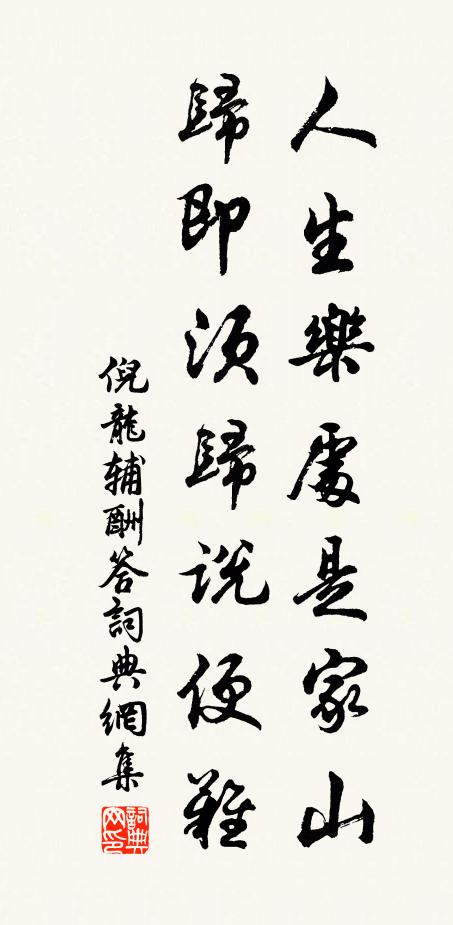 人生樂處是家山
歸即須歸說便難
倪龍輔酬答詞典網集
詞典網印